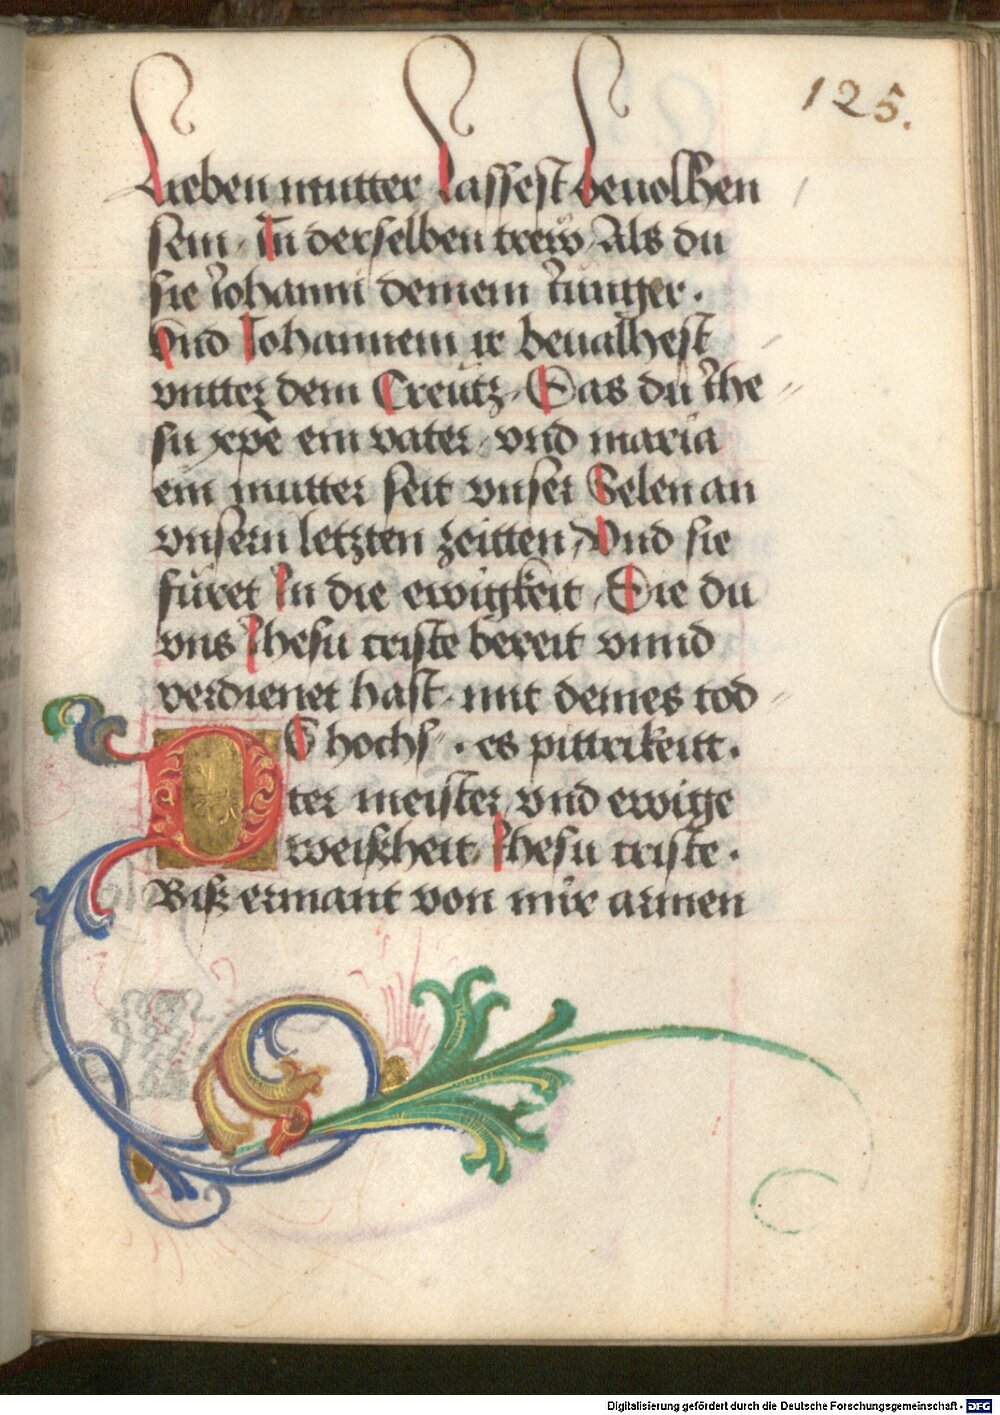 125.
Lieben mutter Lassest beuolhen
sein, In derselben trew, Als du
sie Iohanni deinem Iunger.
Vnd Iohannem ir beualhest
vnter dem Creutz, Das du Ihe
su xpe ein vater, vnd maria
ein mutter seit vnser Selen an
vnsern letzten zeitten, Vnd sie
füret In die ewigkeit, Die du
vns Ihesu criste bereit vnnd
verdienet hast, mit deines tod
O hochs es pittrikeitt.
ter meister, vnd ewige
weißheit, Ihesu criste.
Biß ermant von mir armen
Digitalisierung gefördert durch die Deutsche Forschungsgemeinschaft - DFG